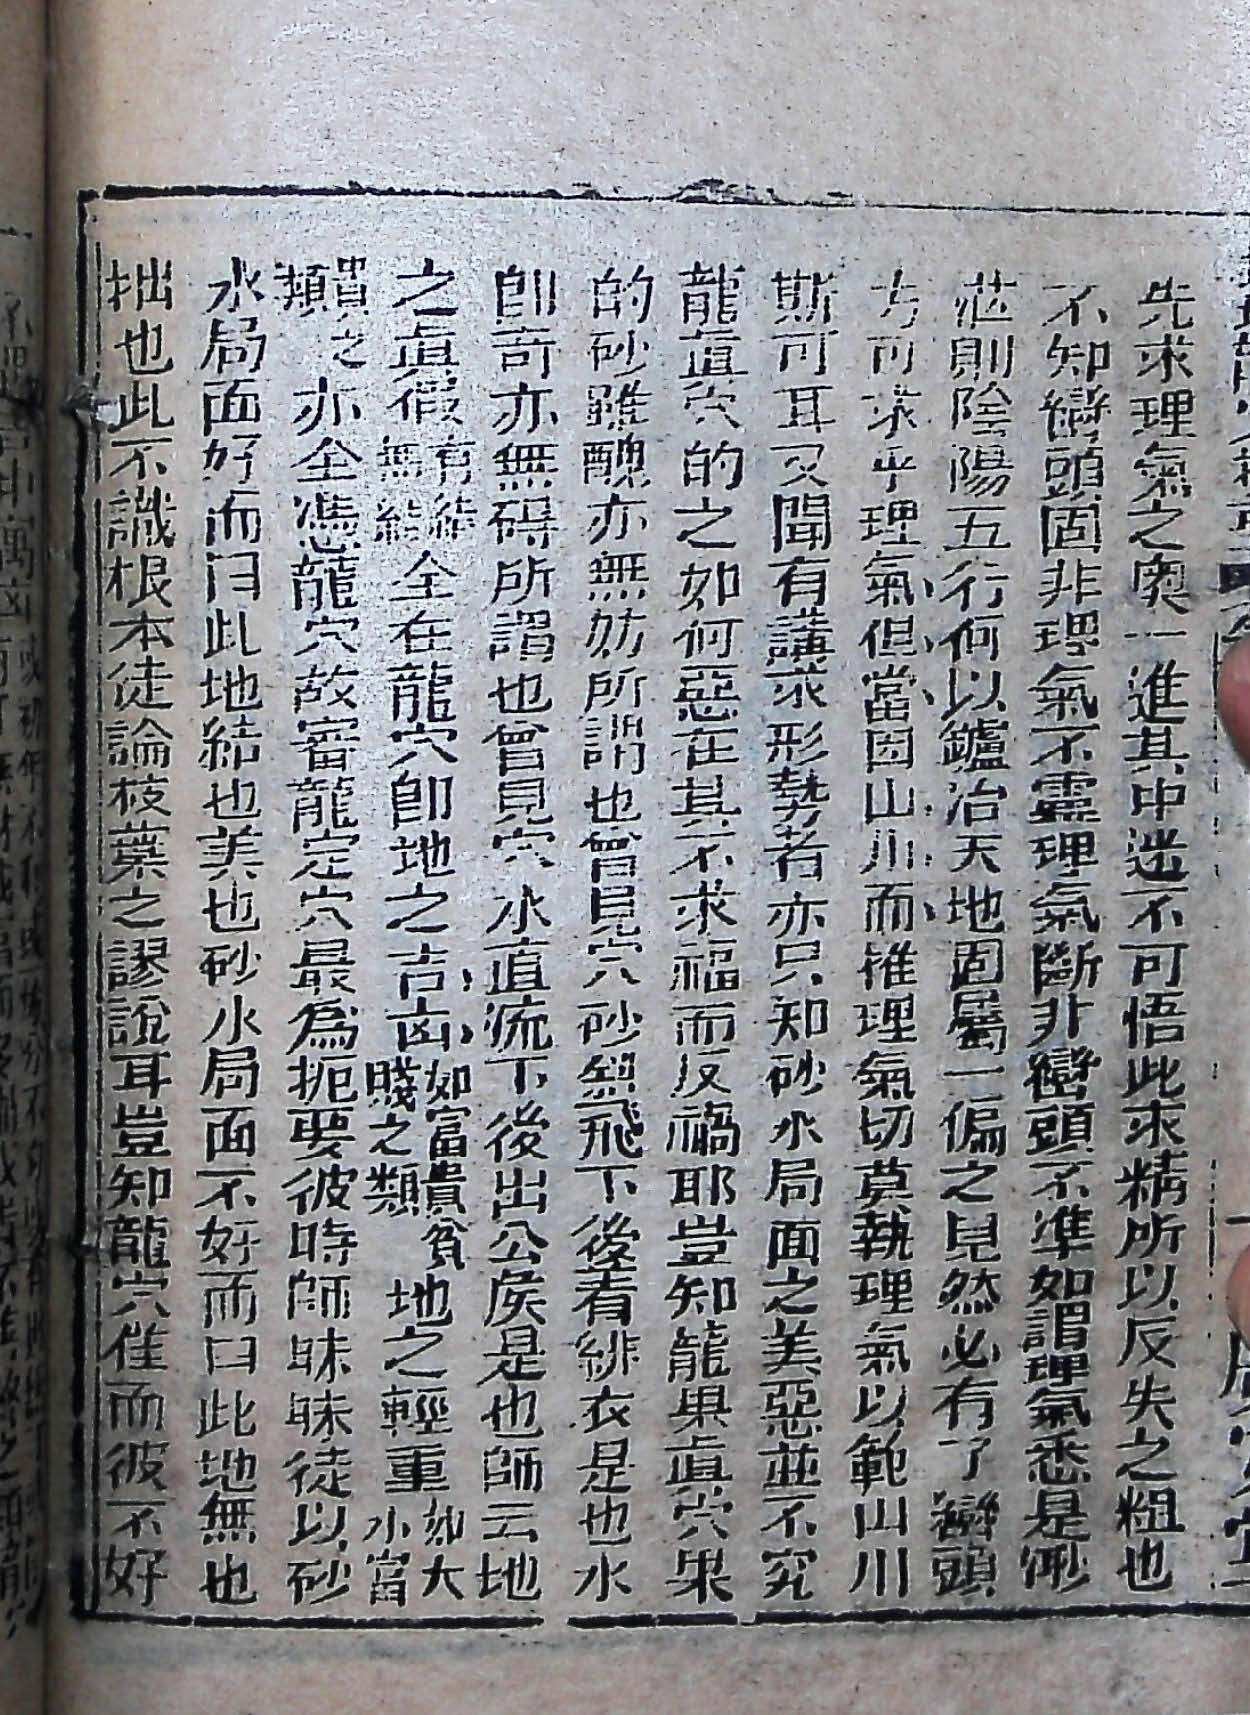 先求理氣之奧一進其中迷不可悟此求精所以反失之粗也
不知巒頭固非理氣不靈理氣斷非巒頭不準如謂理氣悉是渺
茫則陰陽五行何以鑪冶天地固屬一偏之見然必有了巒頭
方可求乎理氣但當因山川而推理氣切莫執理氣以範山川
斯可耳又聞有講求形勢者亦只知砂水局面之美惡並不究
龍眞穴的之如何惡在其不求福而反禍耶豈知龍果眞穴果
的砂雖醜亦無妨所謂也曾見穴砂飛下後着緋衣是也水
卽奇亦無碍所謂也曾見穴水直流下後出公侯是也師云地
之眞假有結無結全在龍穴卽地之吉凶如富貴貧賤之類地之輕重如大小富
貴之類亦全憑龍穴故審龍定穴最爲扼要彼時師昧昧徒以砂
水局面好而曰此地結也美也砂水局面不好而曰此地無也
拙也此不識根本徒論枝葉之謬說耳豈知龍穴佳而彼不好